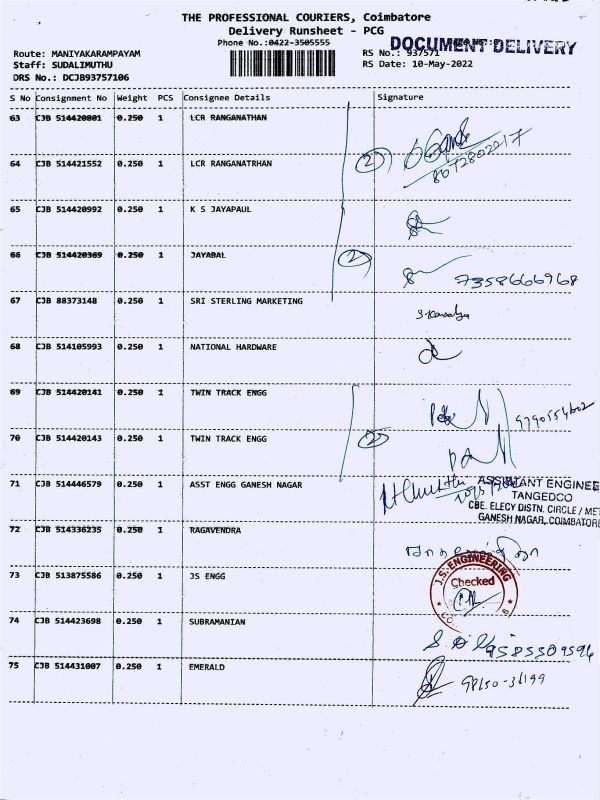 THE PROFESSIONAL COURIERS, Coimbatore
Delivery Runsheet - PCG
Phone No.:0422-3505555
DOCUMENT DELIVERY
Route: MANIYAKARAMPAYAM
RS No.: 937571
Staff: SUDALIMUTHU
RS Date: 10-May-2022
DRS No.: DCJB93757106
S No Consignment No Weight PCS Consignee Details Signature
63 CJB 514420801 0.250 1 LCR RANGANATHAN
64 CJB 514421552 0.250 1 LCR RANGANATRHAN 2
65 CJB 514420992 0.250 1 K S JAYAPAUL
66 CJB 514420369 0.250 1 JAYABAL 2 7358666968
67 CJB 88373148 0.250 1 SRI STERLING MARKETING
68 CJB 514105993 0.250 1 NATIONAL HARDWARE
69 CJB 514420141 0.250 1 TWIN TRACK ENGG
70 CJB 514420143 0.250 1 TWIN TRACK ENGG 2
71 CJB 514446579 0.250 1 ASST ENGG GANESH NAGAR
ASSISTANT ENGINEE
TANGEDCO
CBE. ELECY DISTN. CIRCLE / MET
GANESH NAGAR, COIMBATORE
72 CJB 514336235 0.250 1 RAGAVENDRA
73 CJB 513875586 0.250 1 JS ENGG
J.S. ENGINEERING
Checked
74 CJB 514423698 0.250 1 SUBRAMANIAN
9585509594
75 CJB 514431007 0.250 1 EMERALD